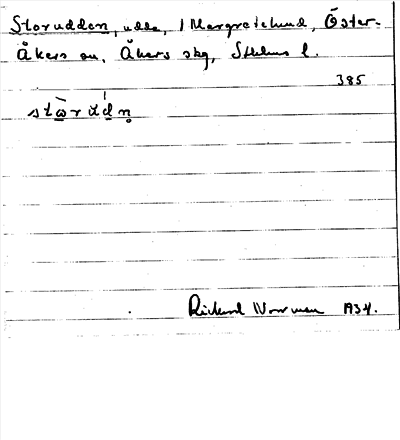 Storudden, udde, i Margretelund, Öster-
Åkers sn, Åkers skg, Sthlms l.
385
stὼrúdn̥
Rickard Norrman 1934.